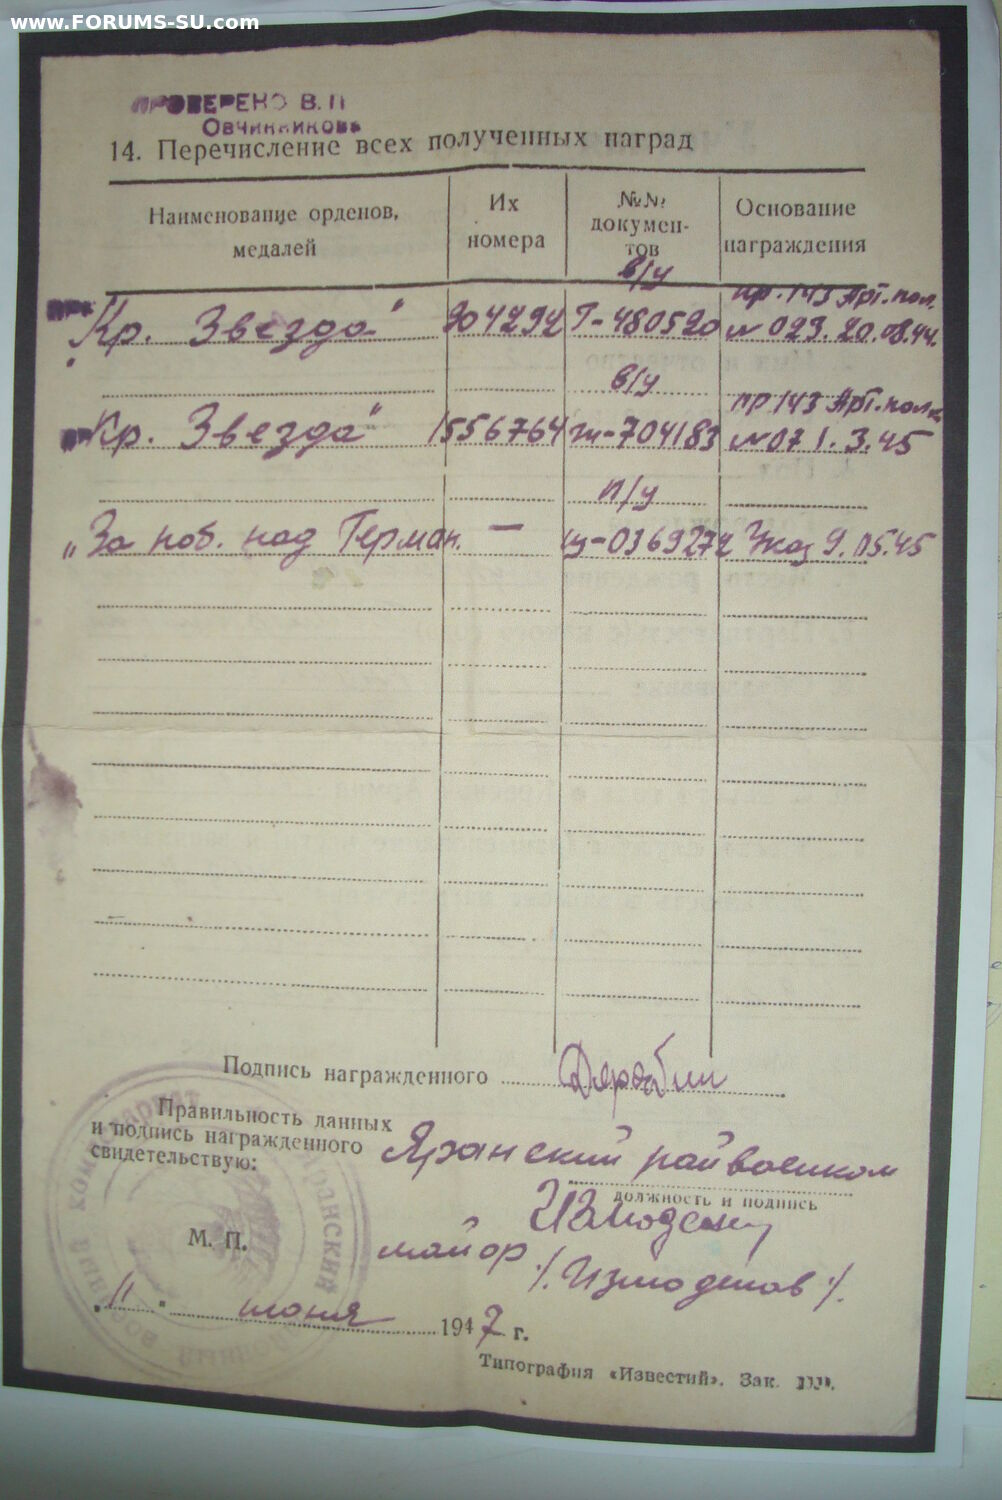 www.FORUMS-SU.com
ПРОВЕРЕНО В. П
Овчинникова
14. Перечисление всех полученных наград
Наименование орденов, медалей
Их номера
№№ документов
Основание награждения
"Кр. Звезда" 904294 в/у Г-480520 пр. 143 Арт. пол. №023. 20.08.44.
"Кр. Звезда" 1556764 в/у 704183 пр 143 Арт. полка №07 1.3.45
"За поб. над Герман. — п/у щ-0369272 Указ 9.05.45
Подпись награжденного
Правильность данных
и подпись награжденного
свидетельствую:
Яранский райвоенком
должность и подпись
М. П.
майор /Измоденов/.
"11" июня 1947 г.
Типография «Известий». Зак.